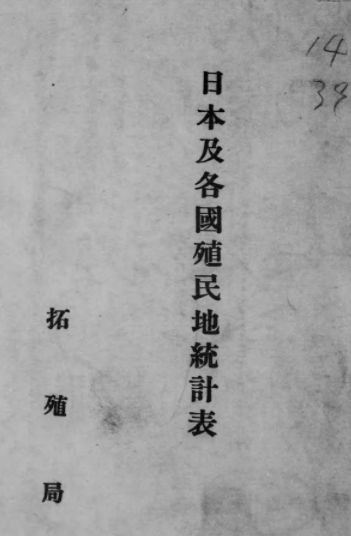 14
39
日本及各國殖民地統計表
拓殖局